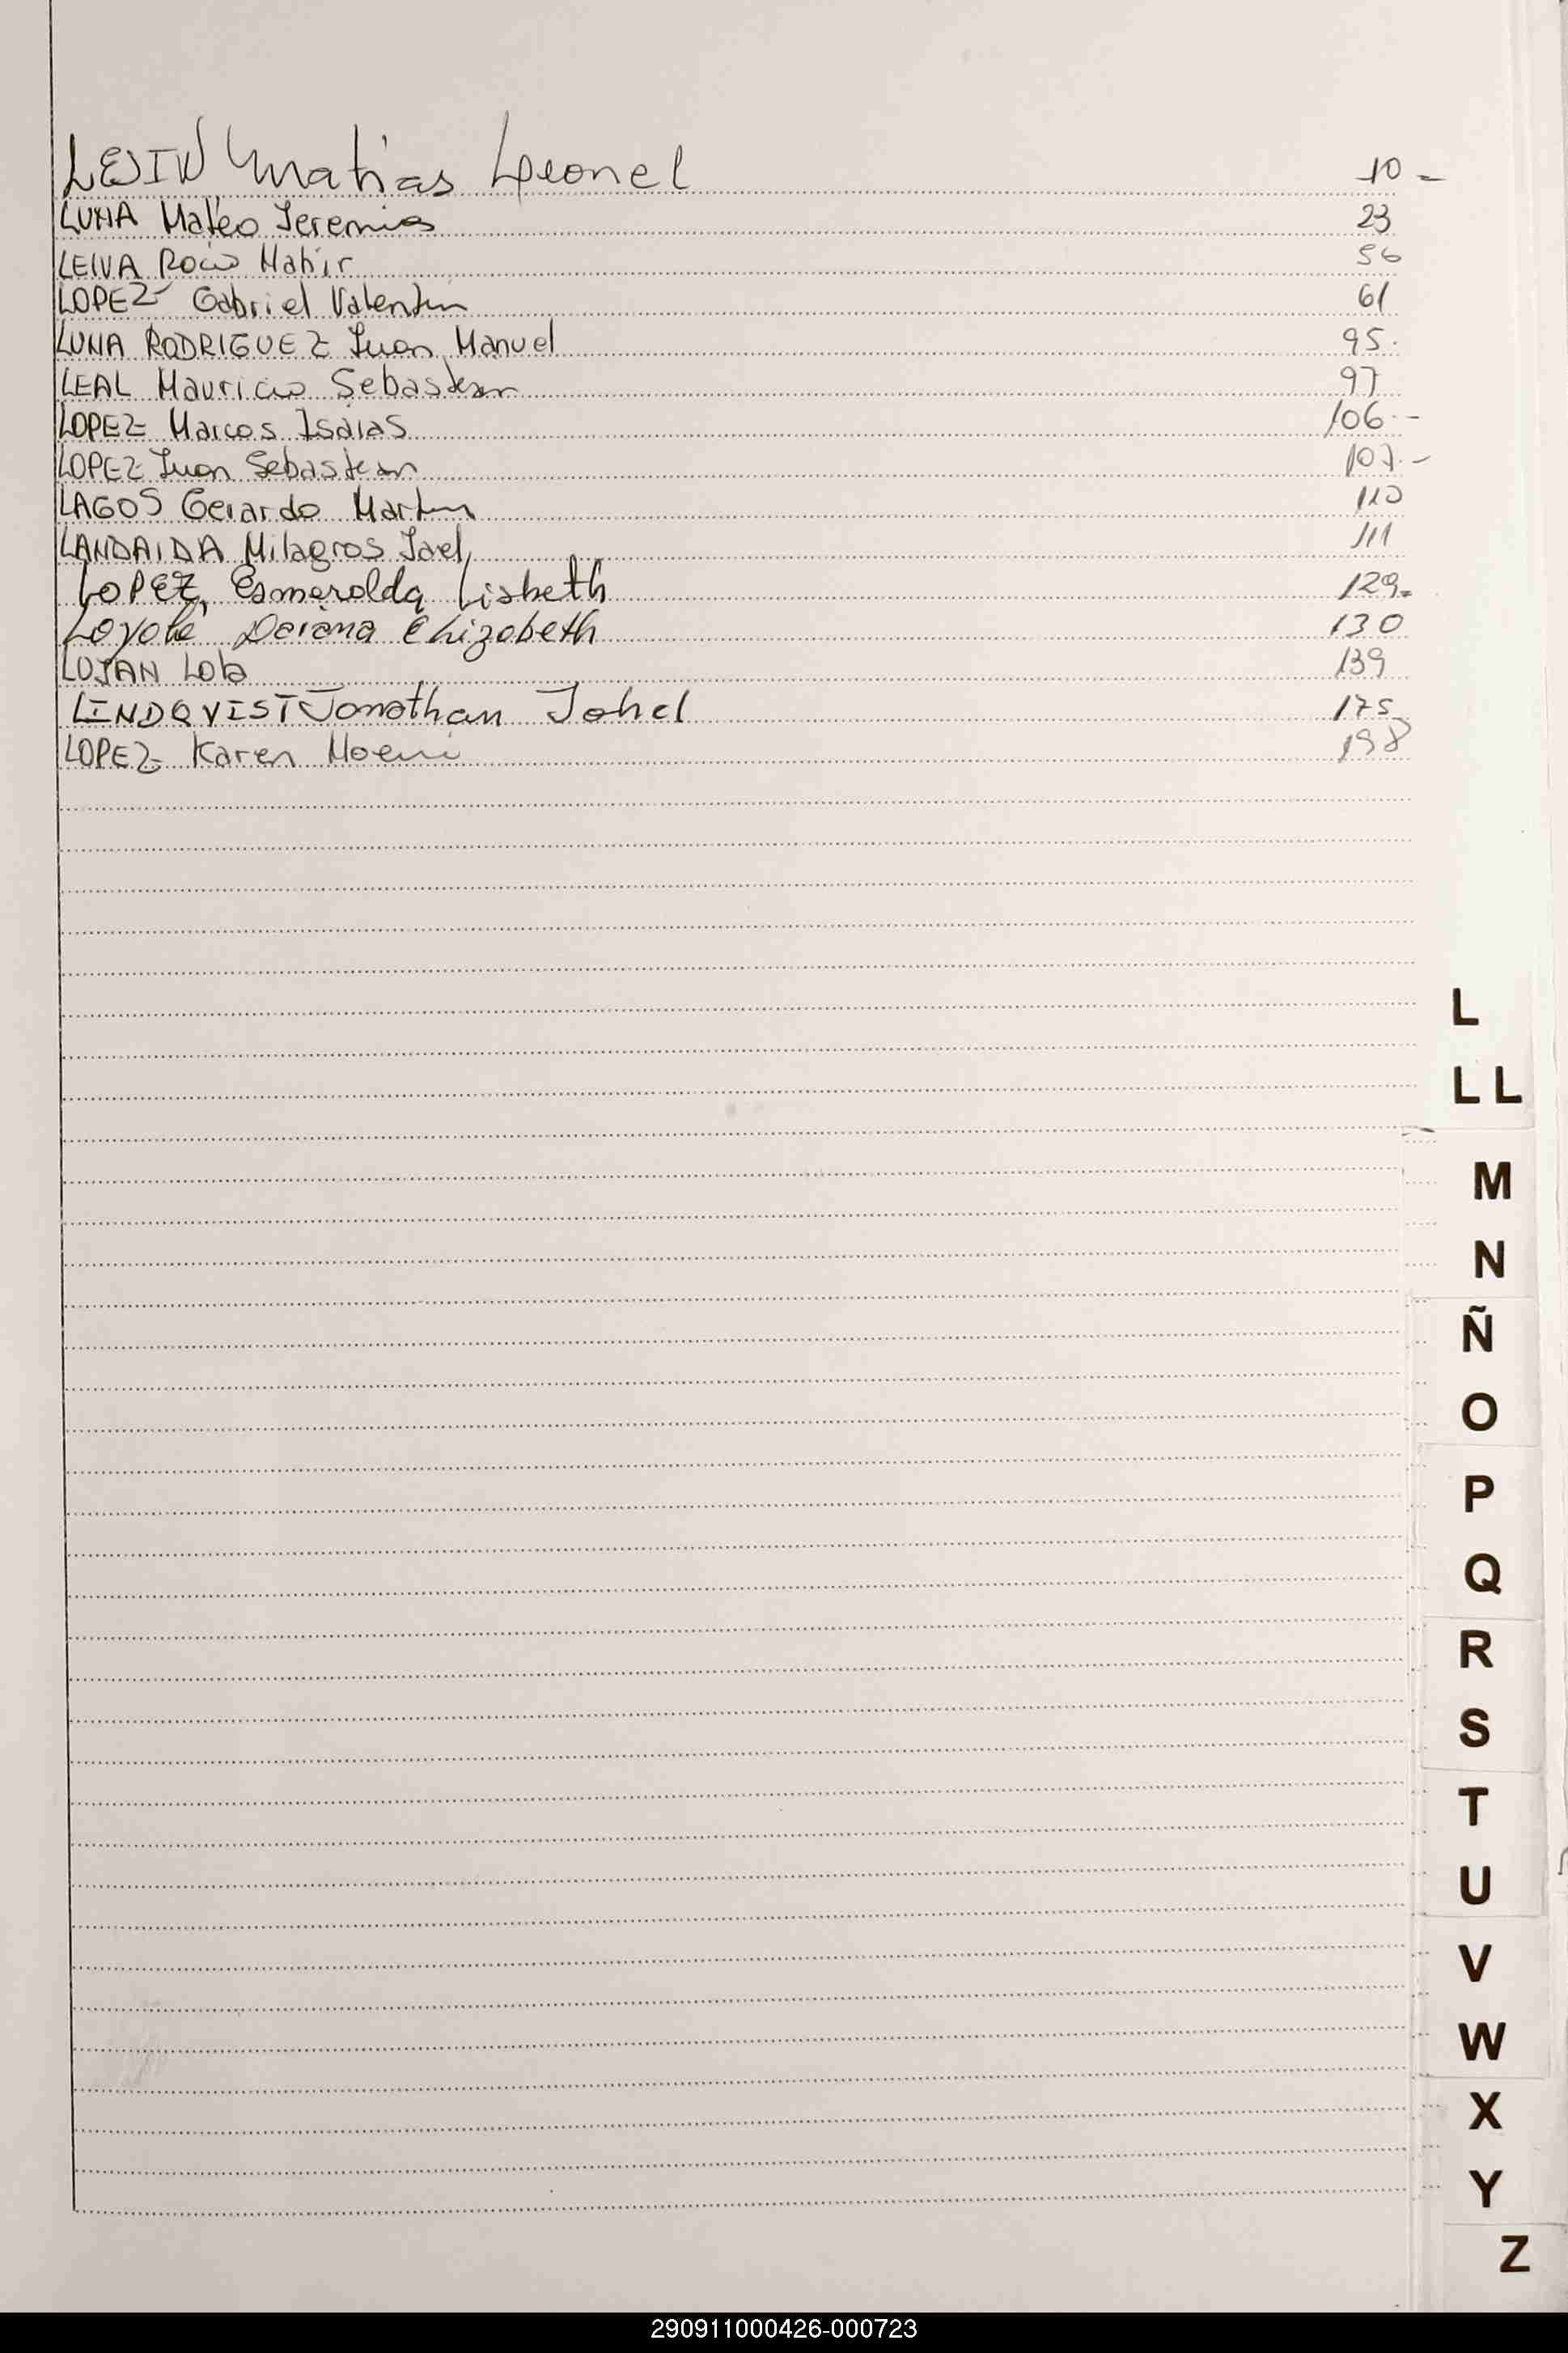 LEWIN Matias Leonel 10 -
LUNA Mateo Jeremias 23
LEIVA Rocio Nahir 56
LOPEZ Gabriel Valentin 61
LUNA RODRIGUEZ Juan Manuel 95.
LEAL Mauricio Sebastian 97
LOPEZ Marcos Isaias 106 -
LOPEZ Juan Sebastian 107 -
LAGOS Gerardo Martin 110
LANDAIDA Milagros Jael 111
LOPEZ, Esmeralda Lisbeth 129-
Loyola Daiana Elizabeth 130
LUJAN Lola 139
LINDQVIST Jonathan Johel 175
LOPEZ Karen Noemi 198
L
LL
M
N
Ñ
O
P
Q
R
S
T
U
V
W
X
Y
Z
290911000426-000723